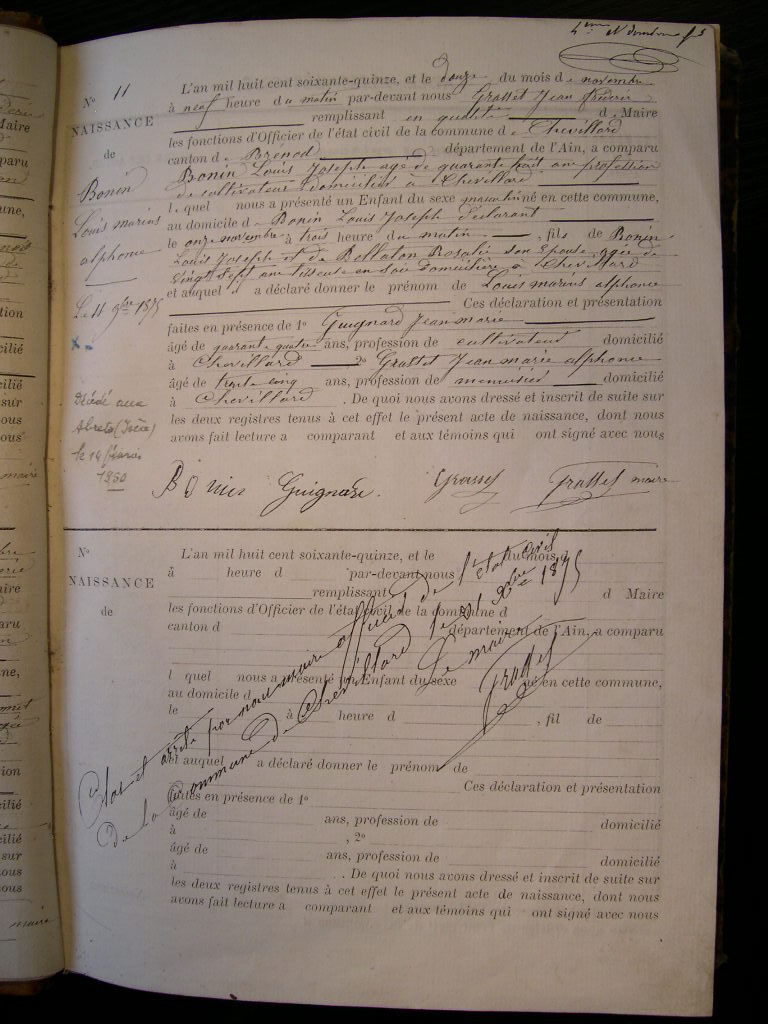 N° 11
NAISSANCE
de
Bonin
Louis marius
alphonse
Le 11 9bre 1875
Décédé aux
Abrets (Isère)
le 14 février
1950
L'an mil huit cent soixante-quinze, et le douze du mois de novembre
à neuf heure du matin par-devant nous Grasset Jean
remplissant en qualité de Maire
les fonctions d'Officier de l'état civil de la commune de Chevillard
canton de Brénod département de l'Ain, a comparu
Bonin Louis Joseph agé de quarante huit ans profession
de cultivateur domicilié à Chevillard
lequel nous a présenté un Enfant du sexe masculin né en cette commune,
au domicile de Bonin Louis Joseph déclarant
le onze novembre à trois heure du matin, fils de Bonin
Louis Joseph et de Bollaton Rosalie son Epouse agée de
vingt sept ans tisseuse en soie domicilière à Chevillard
et auquel il a déclaré donner le prénom de Louis marius alphonse
Ces déclaration et présentation
faites en présence de 1° Guignard Jean marie
âgé de quarante quatre ans, profession de cultivateur domicilié
à Chevillard 2° Grasset Jean marie alphonse
âgé de trente cinq ans, profession de menuisier domicilié
à Chevillard. De quoi nous avons dressé et inscrit de suite sur
les deux registres tenus à cet effet le présent acte de naissance, dont nous
avons fait lecture a comparant et aux témoins qui ont signé avec nous
Bonin Guignard. Grasset Grasset maire
N°
NAISSANCE
de
L'an mil huit cent soixante-quinze, et le du mois d
à heure d par-devant nous
remplissant d Maire
les fonctions d'Officier de l'état civil de la commune d
canton d département de l'Ain, a comparu
l quel nous a présenté un Enfant du sexe né en cette commune,
au domicile d
le à heure d , fil de
et auquel a déclaré donner le prénom de
Ces déclaration et présentation
faites en présence de 1°
âgé de ans, profession de domicilié
à , 2°
âgé de ans, profession de domicilié
à . De quoi nous avons dressé et inscrit de suite sur
les deux registres tenus à cet effet le présent acte de naissance, dont nous
avons fait lecture a comparant et aux témoins qui ont signé avec nous
Clos et arrêté par nous maire officier de l'état civil
de la Commune de Chevillard le 31 Xbre 1875
Le maire
Grasset